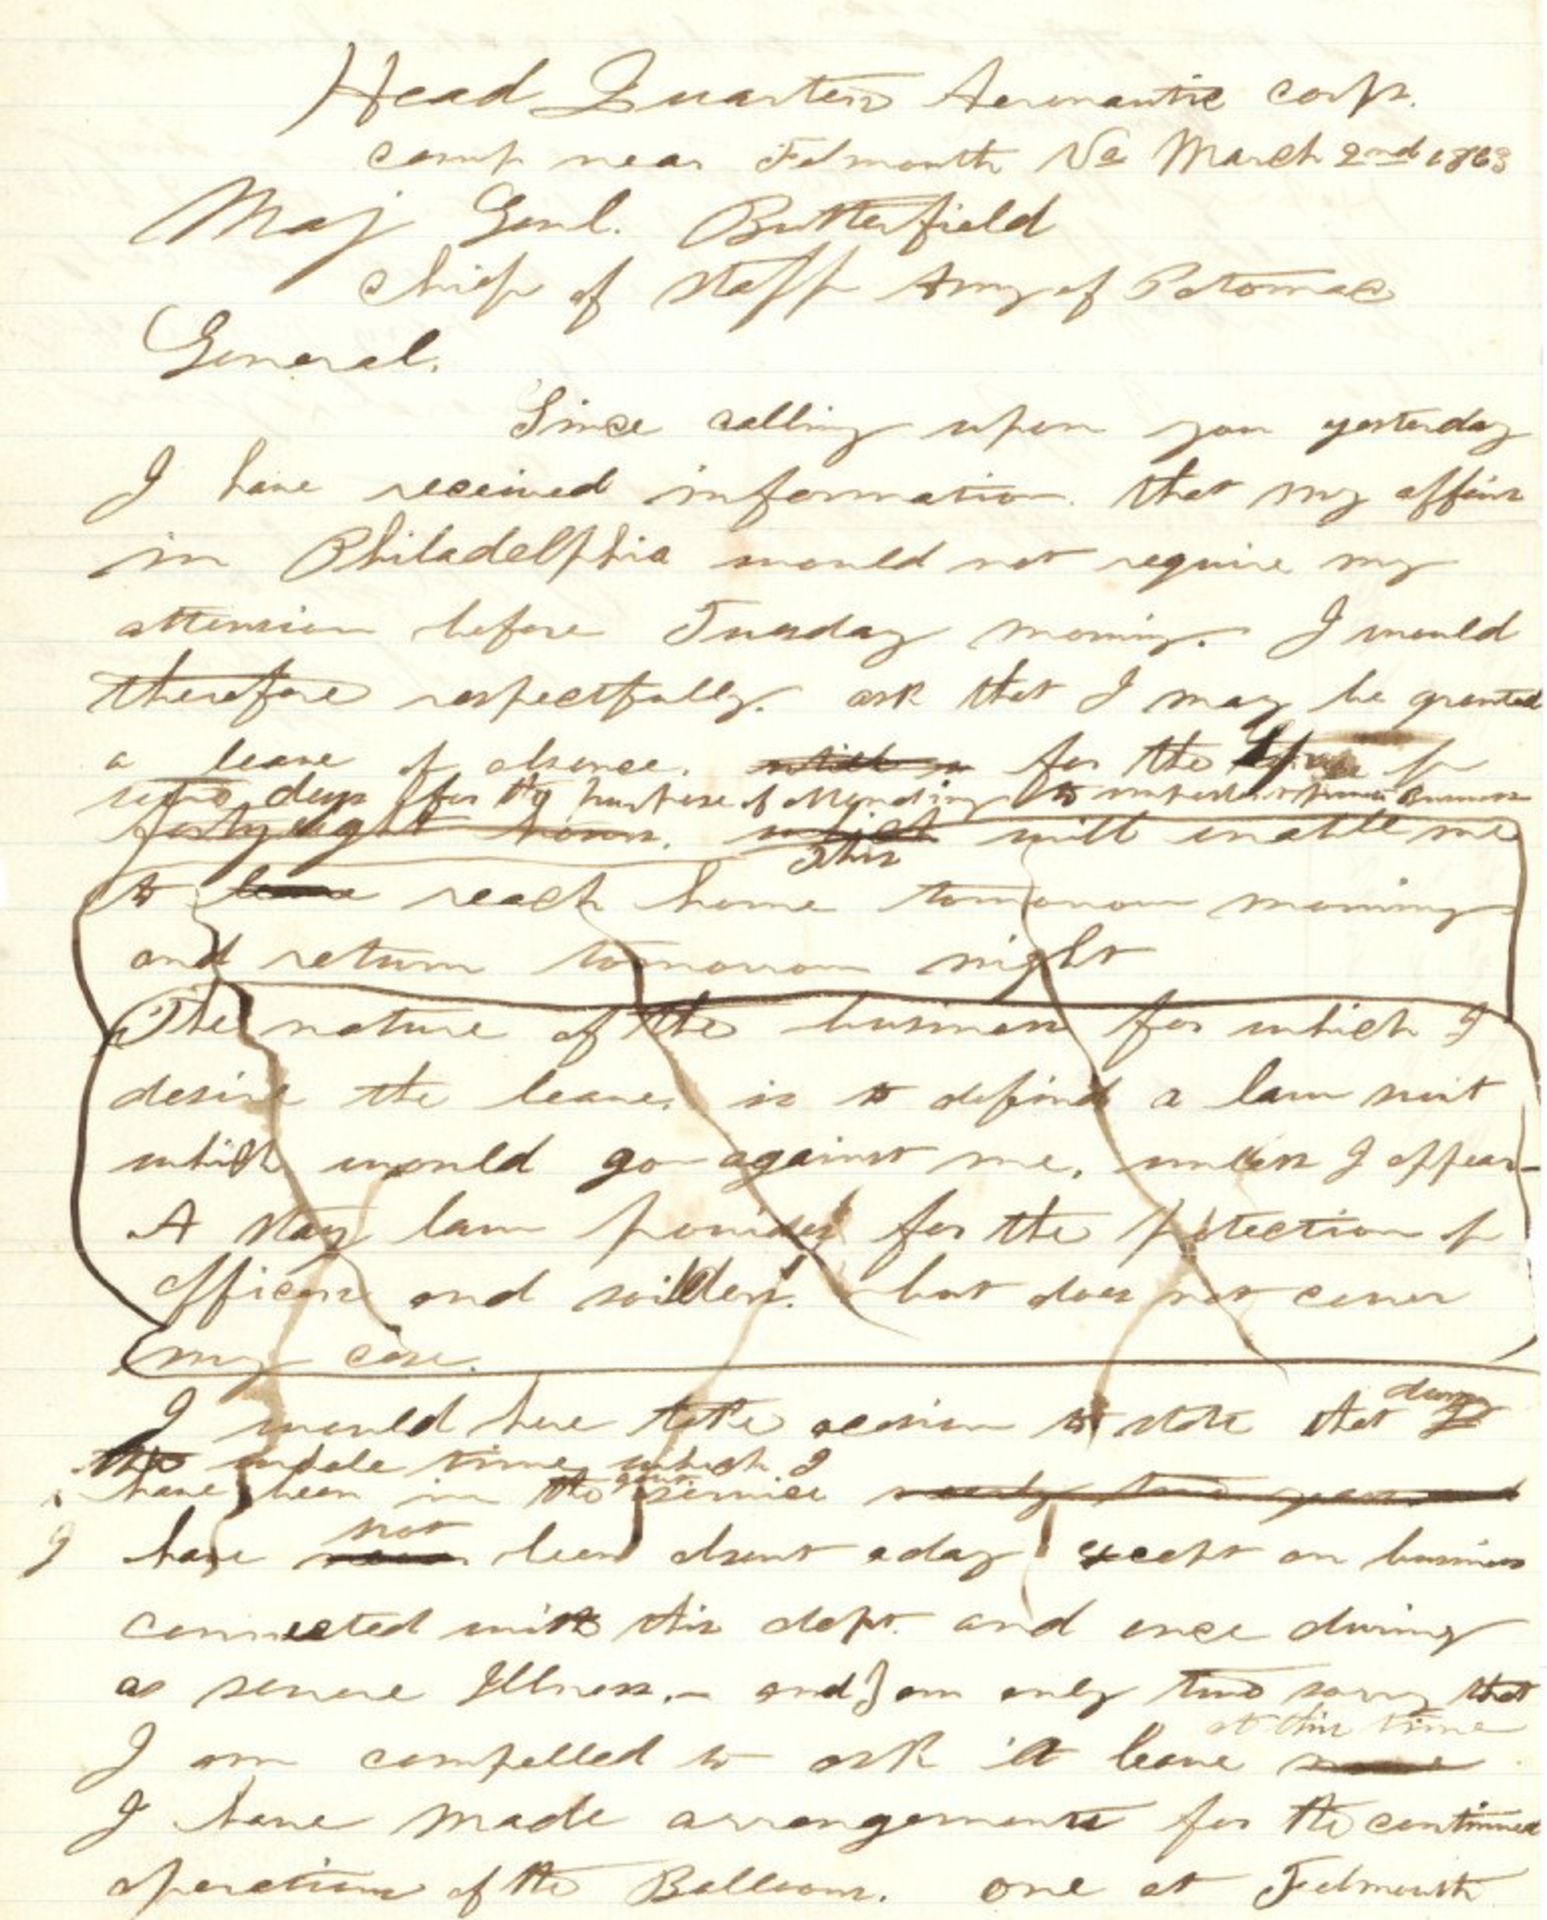 Head Quarters Aeronautic corps.
camp near Falmouth Va March 2nd 1863
Maj Genl. Butterfield
chief of staff Army of Potomac
General.
Since calling upon you yesterday
I have received information that my affairs
in Philadelphia would not require my
attention before Tuesday morning. I would
therefore respectfully. ask that I may be granted
a leave of absence. for the of
two days for the purpose of attending to important business
forty eight hours. which will enable me
This
to leave reach home tomorrow morning
and return tomorrow night
The nature of the business for which I
desire the leave, is to defend a law suit
which would go against me, unless I appear-
A stay law provides for the protection of
officers and soilders. but does not cover
my case.
I would here take occasion to state that during
the whole time which I
have been in the your service nearly two years and
not
I have never been absent a day except on business
connected with this dept. and once during
as severe Illness.- and I am only two sorry that
at this time
I am compelled to ask a leave
I have made arrangements for the continued
operations of the Balloons. one at Falmouth